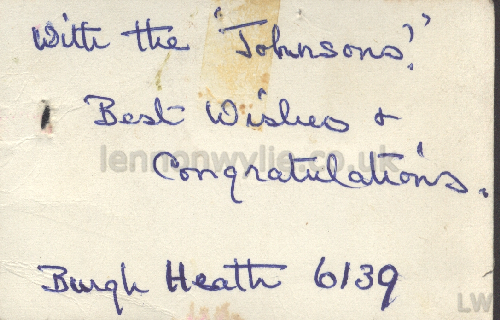 With the "Johnsons."
Best Wishes &
lennonwylie.co.uk
Congratulations.
Burgh Heath 6139
LW